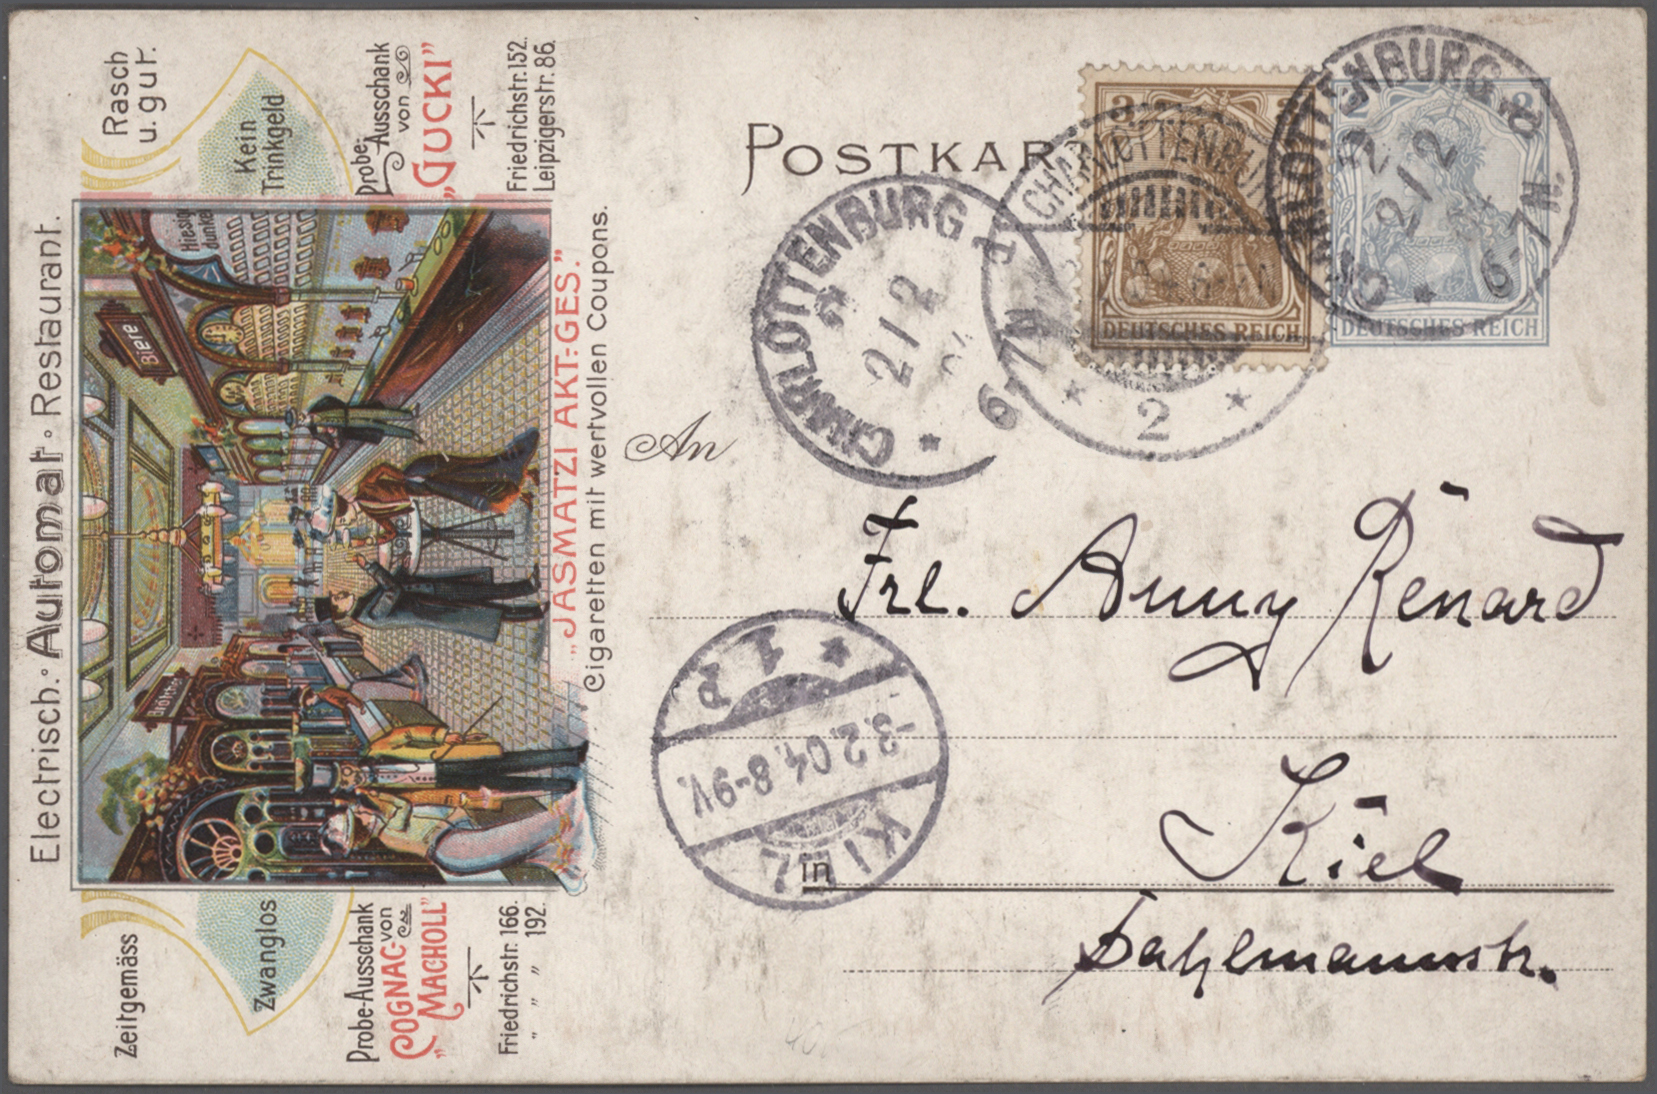 Electrisch. Automat. Restaurant.
Rasch
u. gut.
Kein
Trinkgeld
Probe-Ausschank
von
„GUCKI”
Friedrichstr. 152.
Leipzigerstr. 86.
Hiesige
Biere
Zeitgemäss
Zwanglos
Probe-Ausschank
von
COGNAC
„MACHOLL”
Friedrichstr. 166.
„ „ 192.
„JASMATZI AKT.-GES.”
Cigaretten mit wertvollen Coupons.
POSTKAR
3 3
DEUTSCHES REICH
2
DEUTSCHES REICH
CHARLOTTENBURG 2
2/2
6-7N.
CHARLOTTENBURG 2
2/2
6-7N
CHARLOTTENBURG
* 2 *
An
Frl. Anny Renard
in
Kiel
Dahlmannstr.
KIEL
-3.2.04.8-9V.
* 1 P